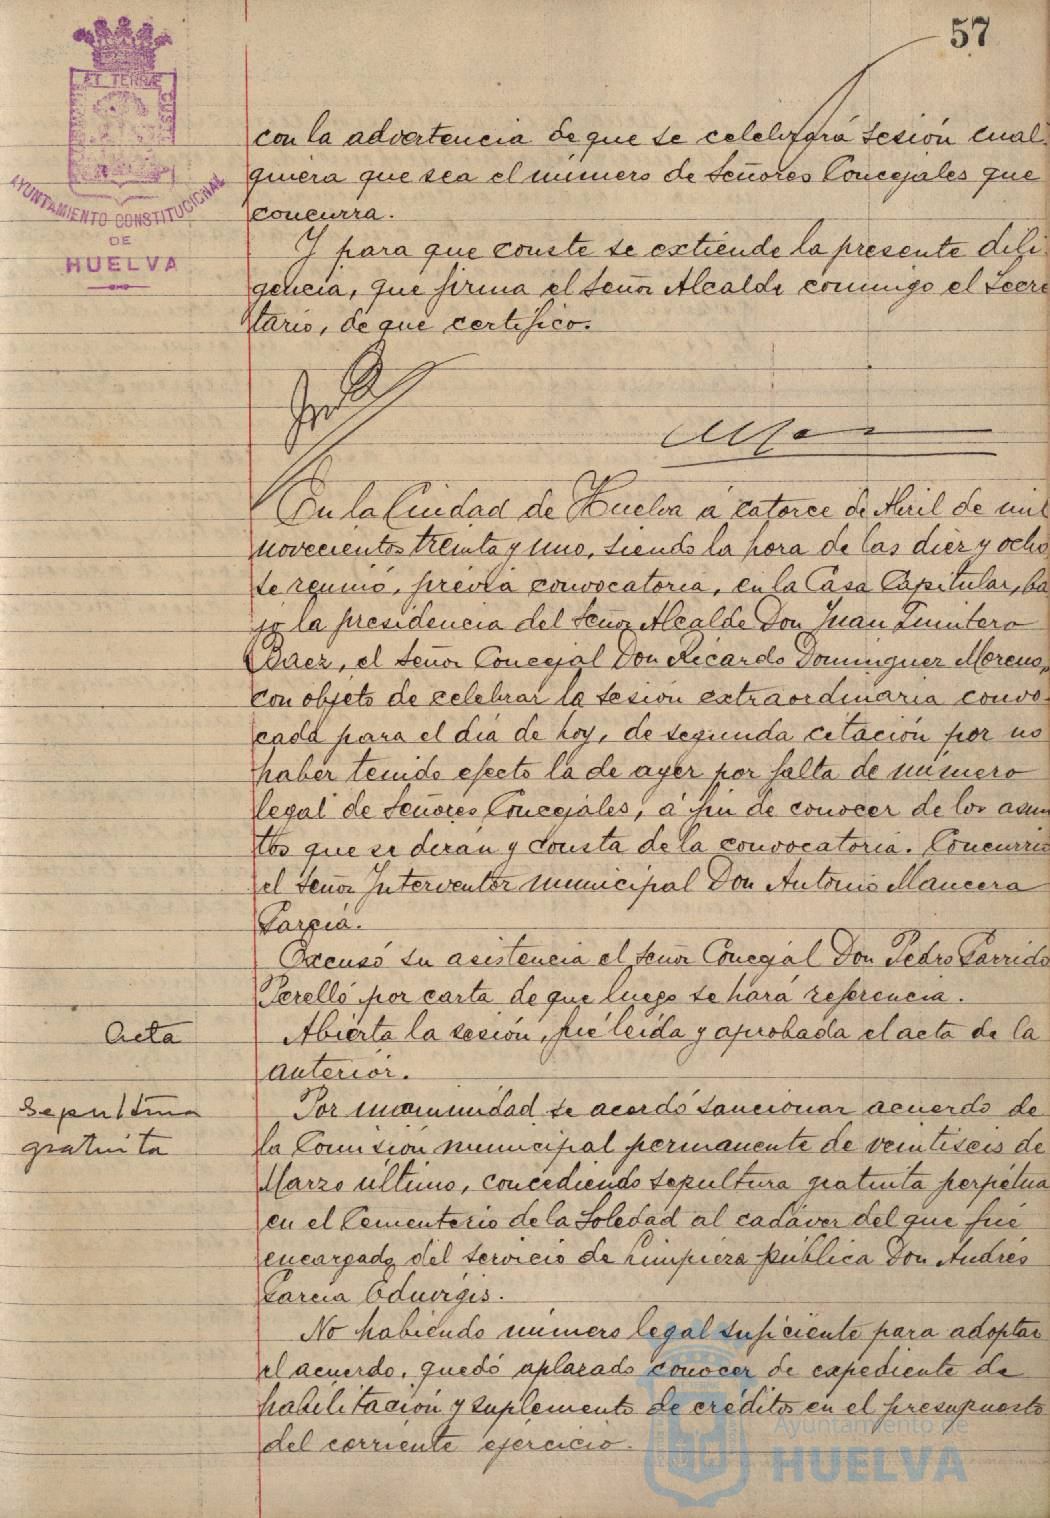 57
ET TERRÆ CUST
AYUNTAMIENTO CONSTITUCIONAL
DE
HUELVA
con la advertencia de que se celebrará sesión cual-
quiera que sea el número de Señores Concejales que
concurra.
Y para que conste se extiende la presente dili-
gencia, que firma el Señor Alcalde conmigo el Secre
tario, de que certifico.
En la Ciudad de Huelva á catorce de Abril de mil
novecientos treinta y uno, siendo la hora de las diez y ocho
se reunió, prévia convocatoria, en la Casa Capitular, ba
jo la presidencia del Señor Alcalde Don Juan Quintero
Baez, el Señor Concejal Don Ricardo Dominguez Moreno,
con objeto de celebrar la sesión extraordinaria convo-
cada para el día de hoy, de segunda citación por no
haber tenido efecto la de ayer por falta de número
legal de Señores Concejales, á fin de conocer de los asun
tos que se dirán y consta de la convocatoria. Concurrió
el Señor Interventor municipal Don Antonio Mancera
García.
Excusó su asistencia el Señor Concejal Don Pedro Garrido
Perelló por carta de que luego se hará referencia.
Acta
Abierta la sesión, fué leída y aprobada el acta de la
anterior.
Sepultura
gratuita
Por unanimidad se acordó sancionar acuerdo de
la Comisión municipal permanente de veintiseis de
Marzo último, concediendo sepultura gratuita perpétua
en el Cementerio de la Soledad al cadáver del que fué
encargado del servicio de Limpieza pública Don Andrés
García Eduvigis.
No habiendo número legal suficiente para adoptar
el acuerdo, quedó aplazado conocer de expediente de
habilitación y suplemento de créditos en el presupuesto
del corriente ejercicio.
Ayuntamiento de
HUELVA